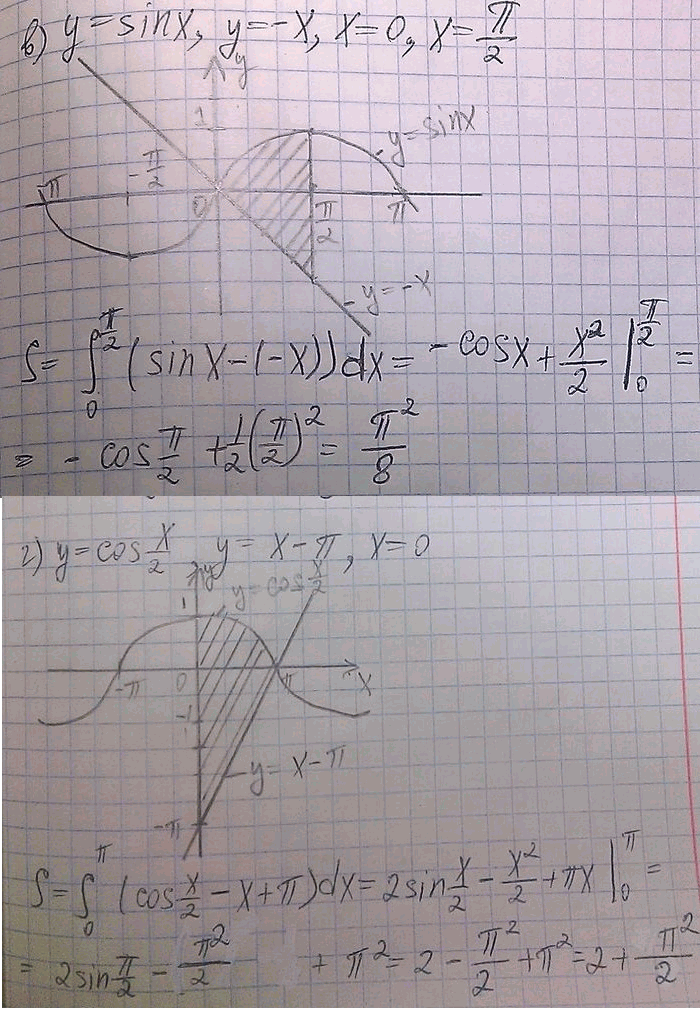 в) y=sinx, y=-x, x=0, x=π/2
y
1
y=sinx
-π -π/2 0 π/2 π
y=-x
S= ∫₀^(π/2) (sinx-(-x))dx= -cosx+x²/2 |₀^(π/2) =
= -cos π/2 +1/2(π/2)² = π²/8
г) y=cos x/2 y= x-π, x=0
y
y=cos x/2
1
-π 0 π x
-1
y= x-π
-π
S= ∫₀^π (cos x/2 -x+π)dx= 2sin x/2 - x²/2 +πx |₀^π =
= 2sin π/2 - π²/2 + π²= 2- π²/2 +π²=2+ π²/2